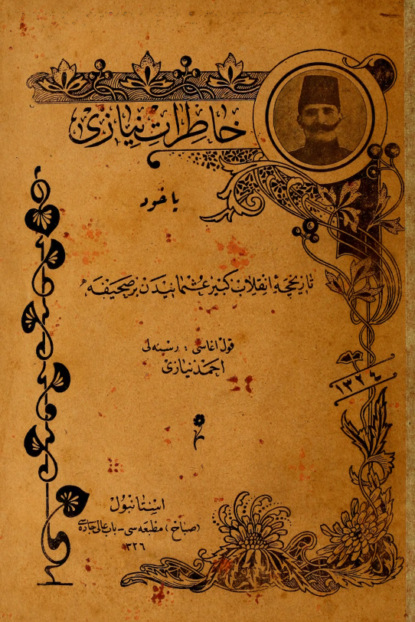 خاطرات نیازی
یاخود
تاریخچهٔ انقلاب کبیر عثمانیدن بر صحیفه
قول آغاسی : رسنه‌لی
احمد نیازی
١٣٢٤
استانبول
(صباح) مطبعه‌سی - باب عالی جاده‌سی
١٣٢٦